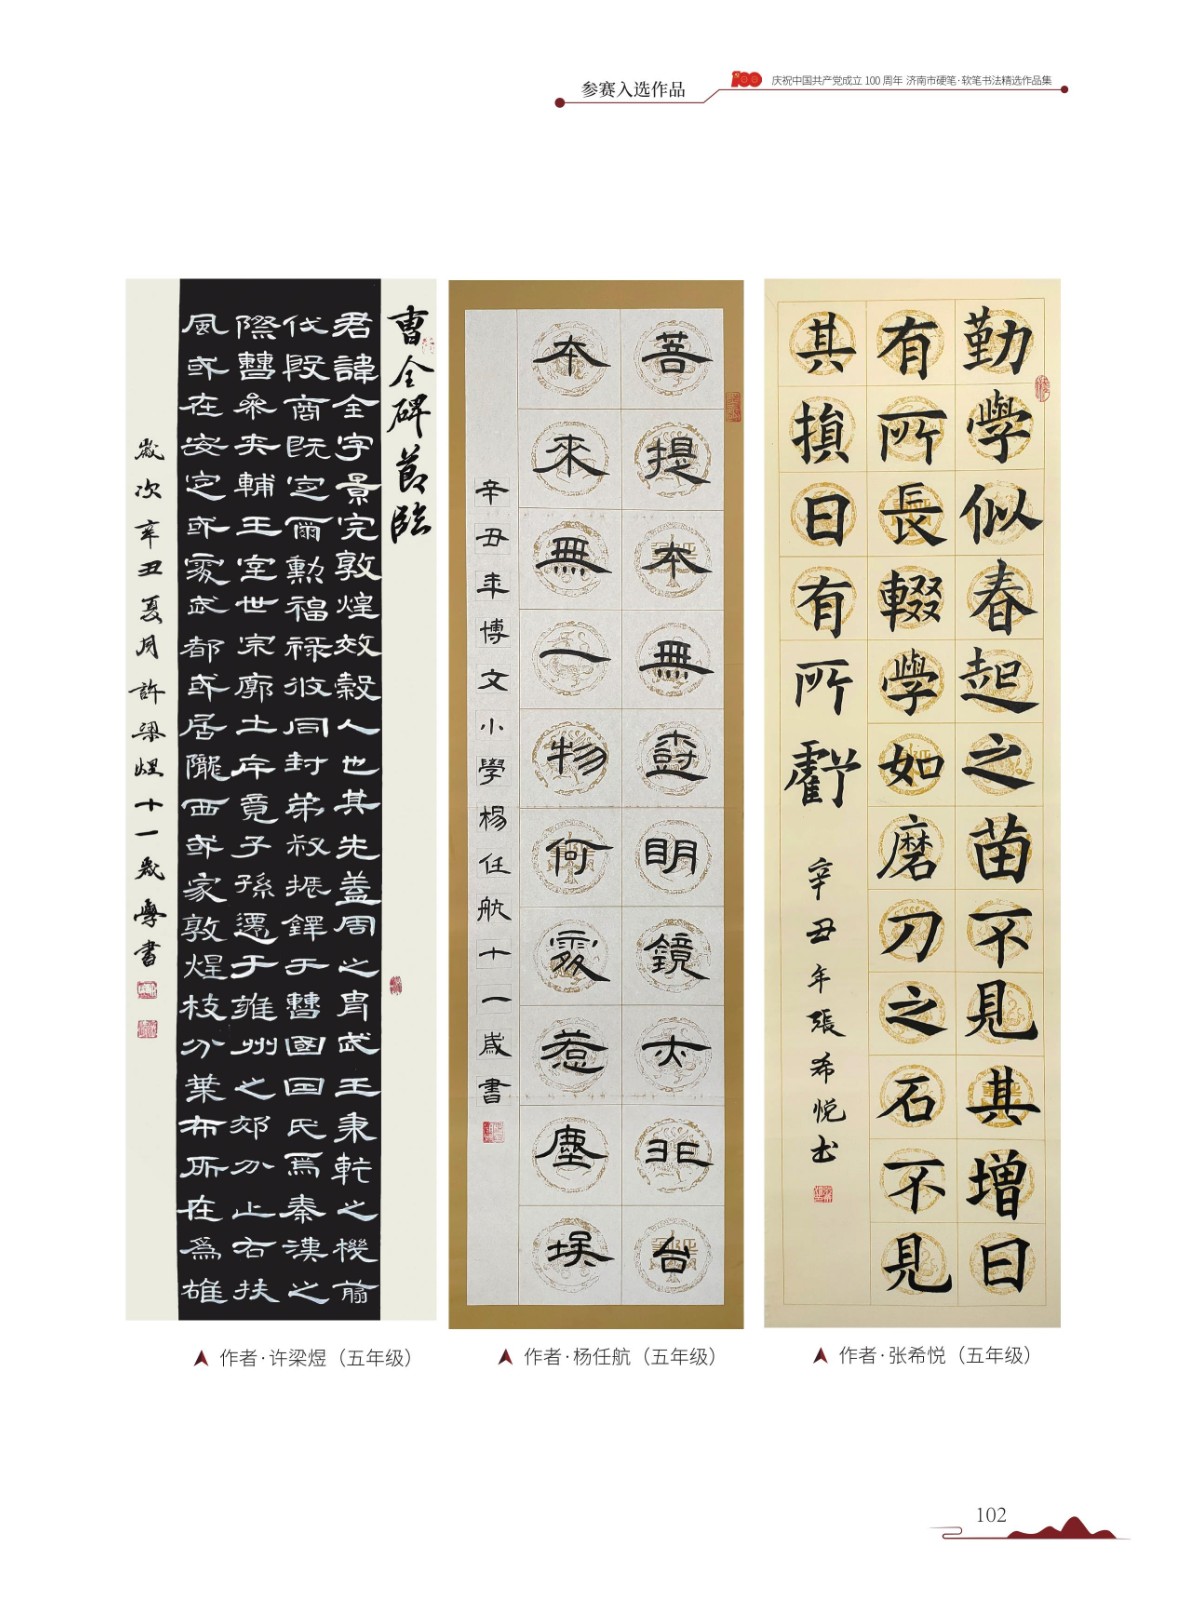 参赛入选作品
100 庆祝中国共产党成立 100 周年 济南市硬笔·软笔书法精选作品集
曹全碑節臨
君諱全字景完敦煌效穀人也其先蓋周之胄武王秉乾之機翦
伐殷商既定爾勳福祿攸同封弟叔振鐸于曹國因氏焉秦漢之
際曹參夾輔王室世宗廓土斥竟子孫遷于雍州之郊分止右扶
風或在安定或處武都或居隴西或家敦煌枝分葉布所在為雄
歲次辛丑夏月許梁煜十一歲學書
作者·许梁煜（五年级）
菩提本無樹明鏡亦非台
本來無一物何處惹塵埃
辛丑年博文小學楊任航十一歲書
作者·杨任航（五年级）
勤學似春起之苗不見其增日
有所長輟學如磨刀之石不見
其損日有所虧
辛丑年張希悅书
作者·张希悦（五年级）
102